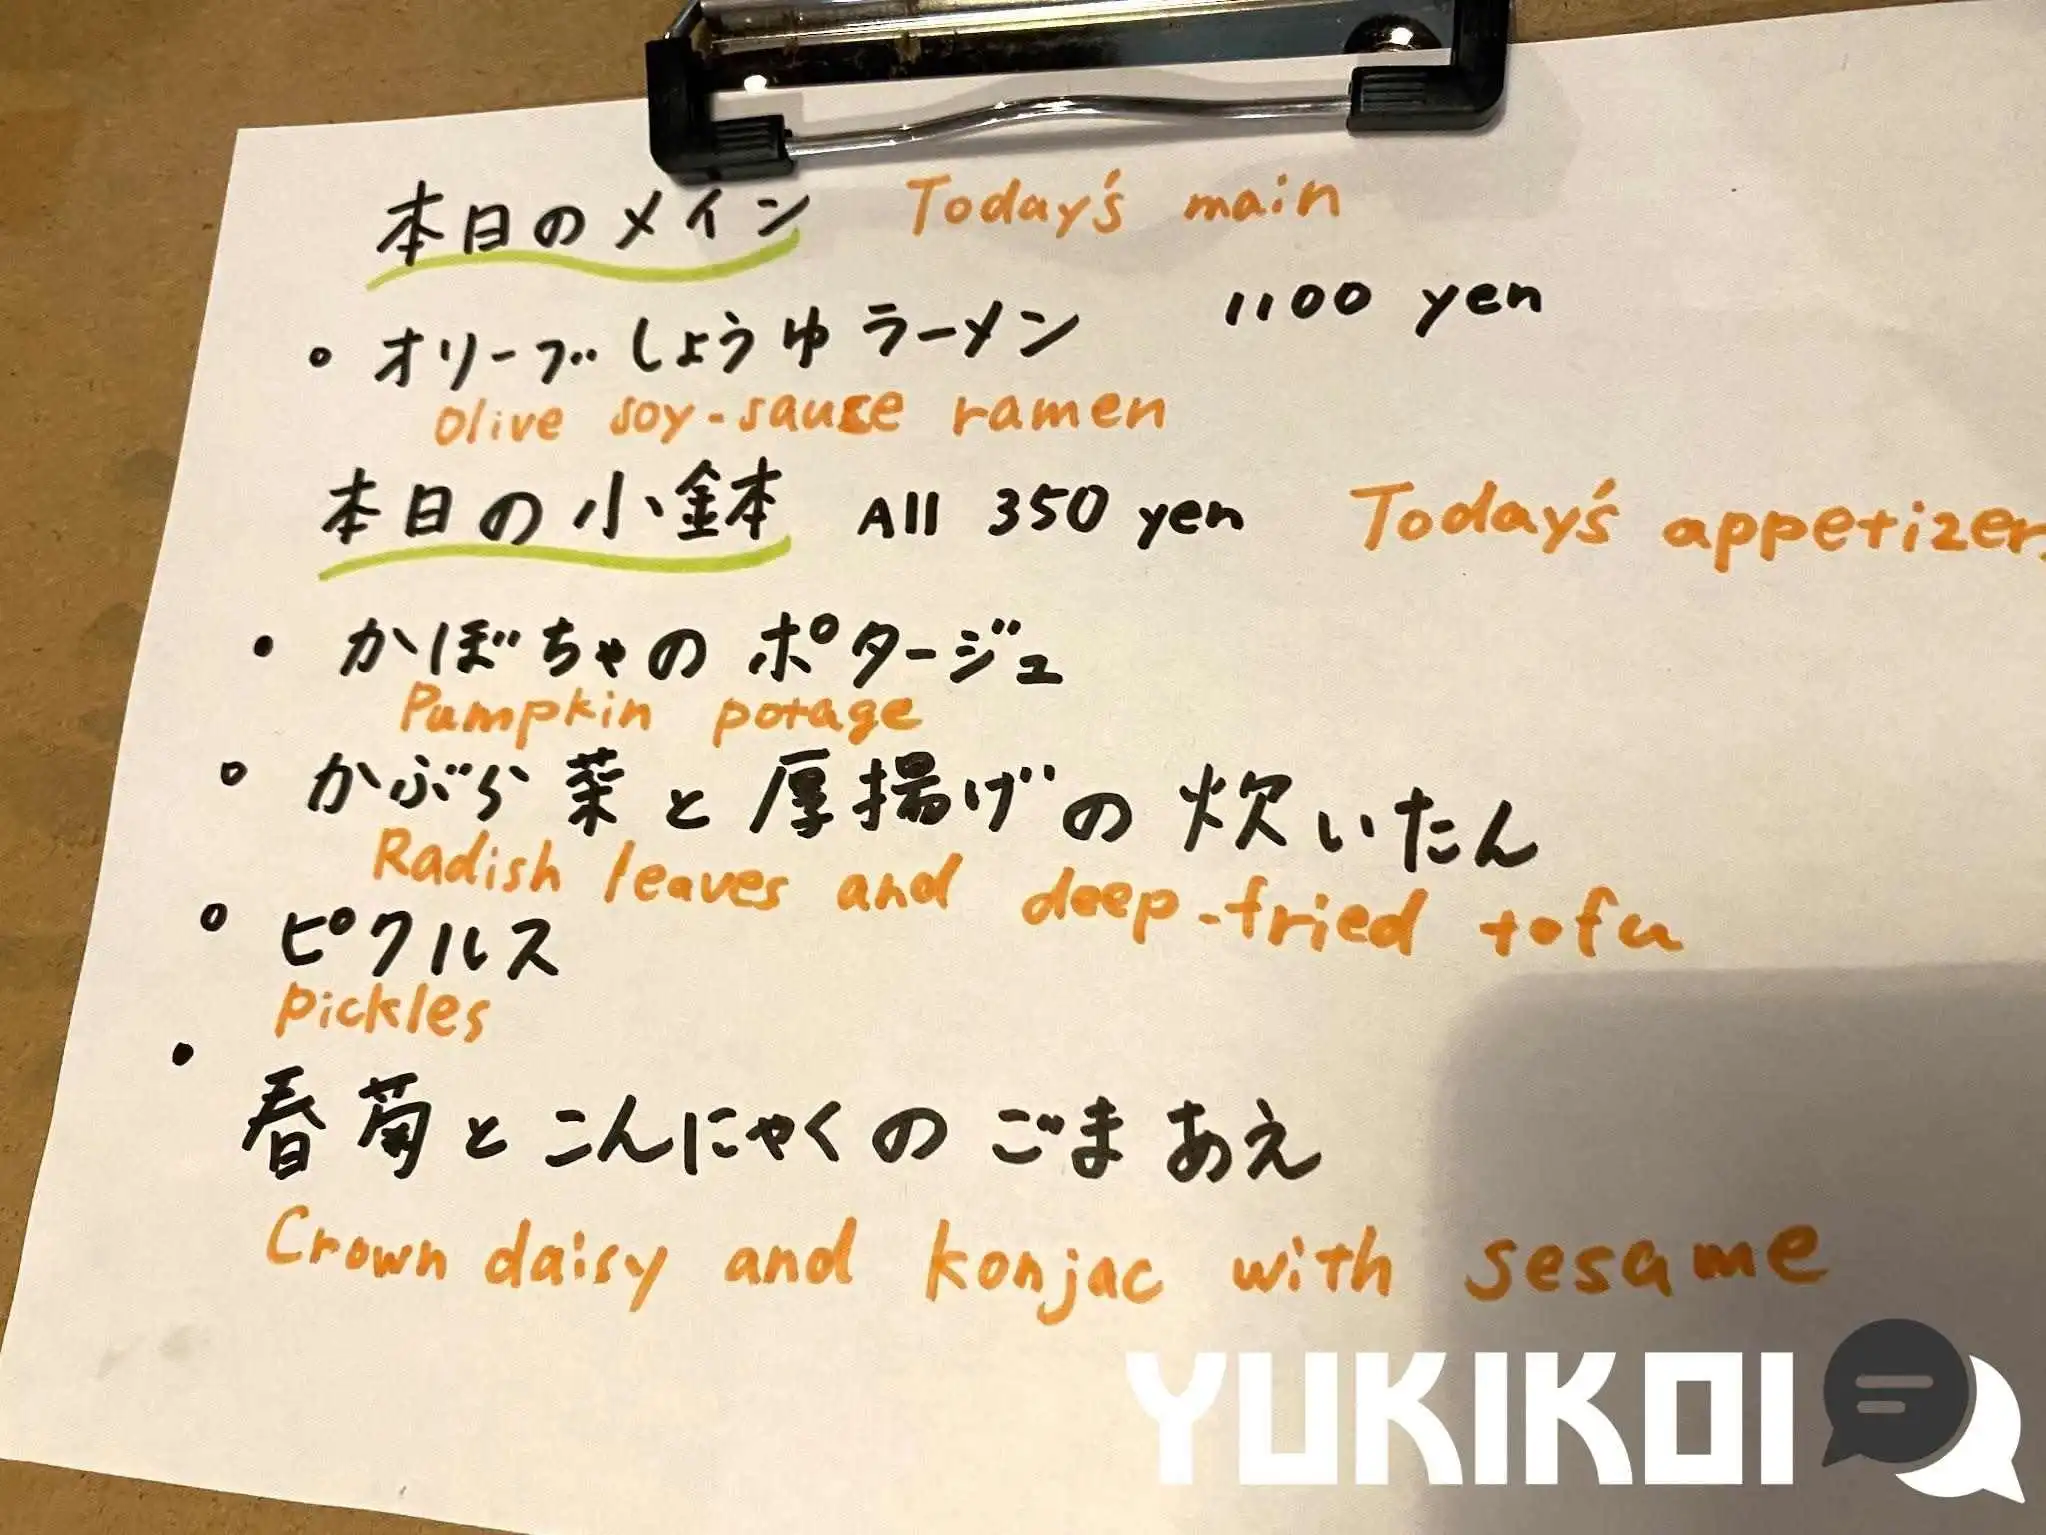 本日のメイン Today's main
・オリーブしょうゆラーメン 1100 yen
Olive soy-sauce ramen
本日の小鉢 All 350 yen Today's appetizers
・かぼちゃのポタージュ
Pumpkin potage
・かぶら菜と厚揚げの炊いたん
Radish leaves and deep-fried tofu
・ピクルス
Pickles
・春菊とこんにゃくのごまあえ
Crown daisy and konjac with sesame
YUKIKOI